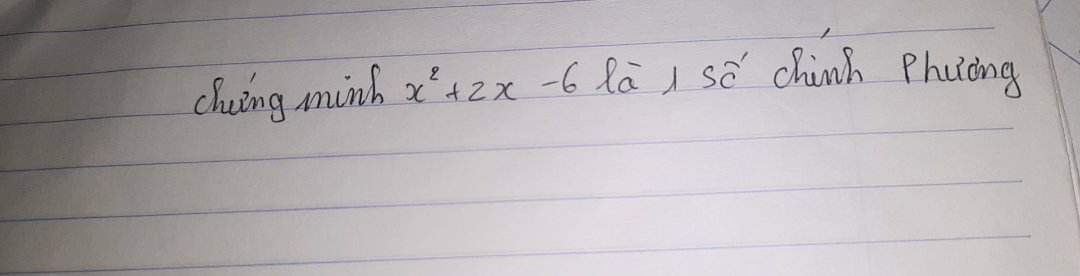 chứng minh x² + 2x - 6 là 1 số chính Phương